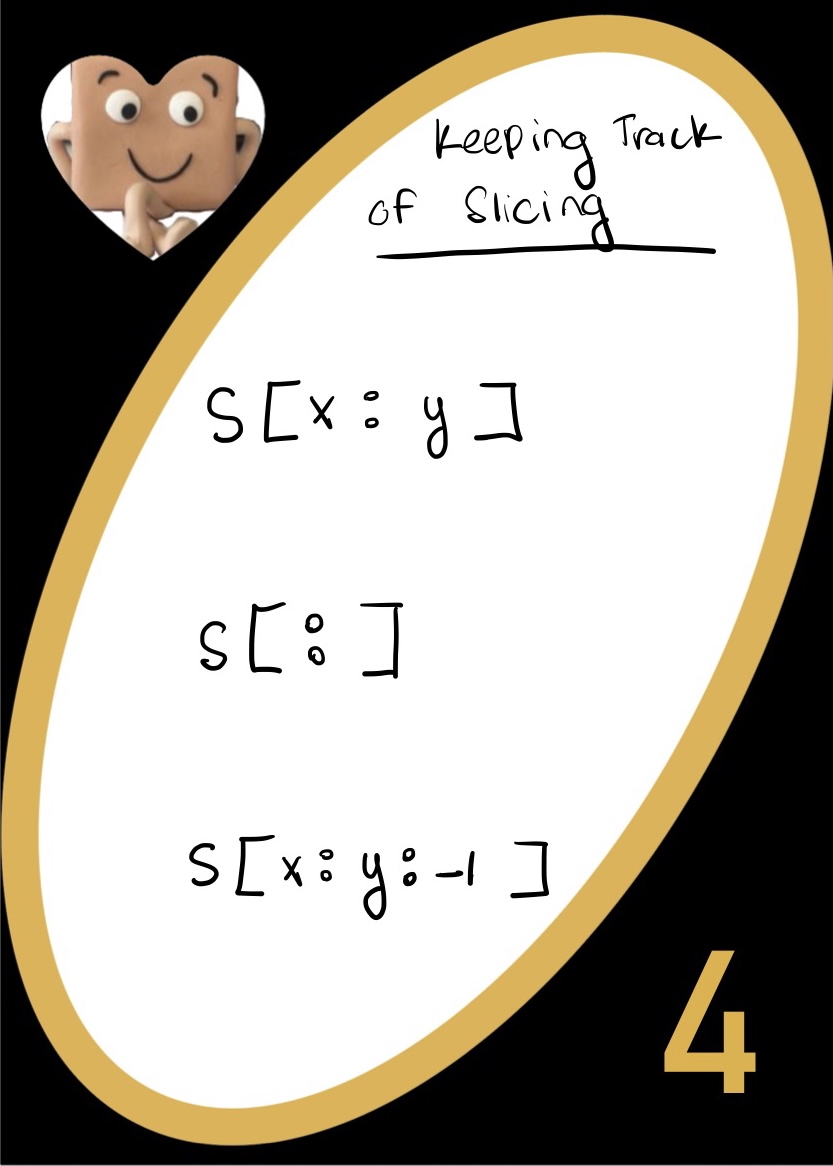 Keeping Track
of Slicing
S[x: y]
S[:]
S[x:y:-1]
4